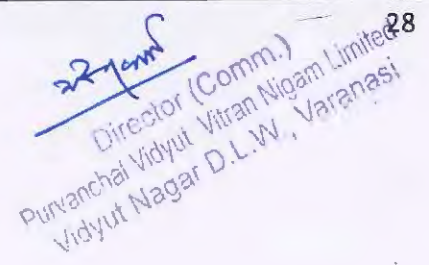 28
Director (Comm.)
Purvanchal Vidyut Vitran Nigam Limited
Vidyut Nagar D.L.W., Varanasi